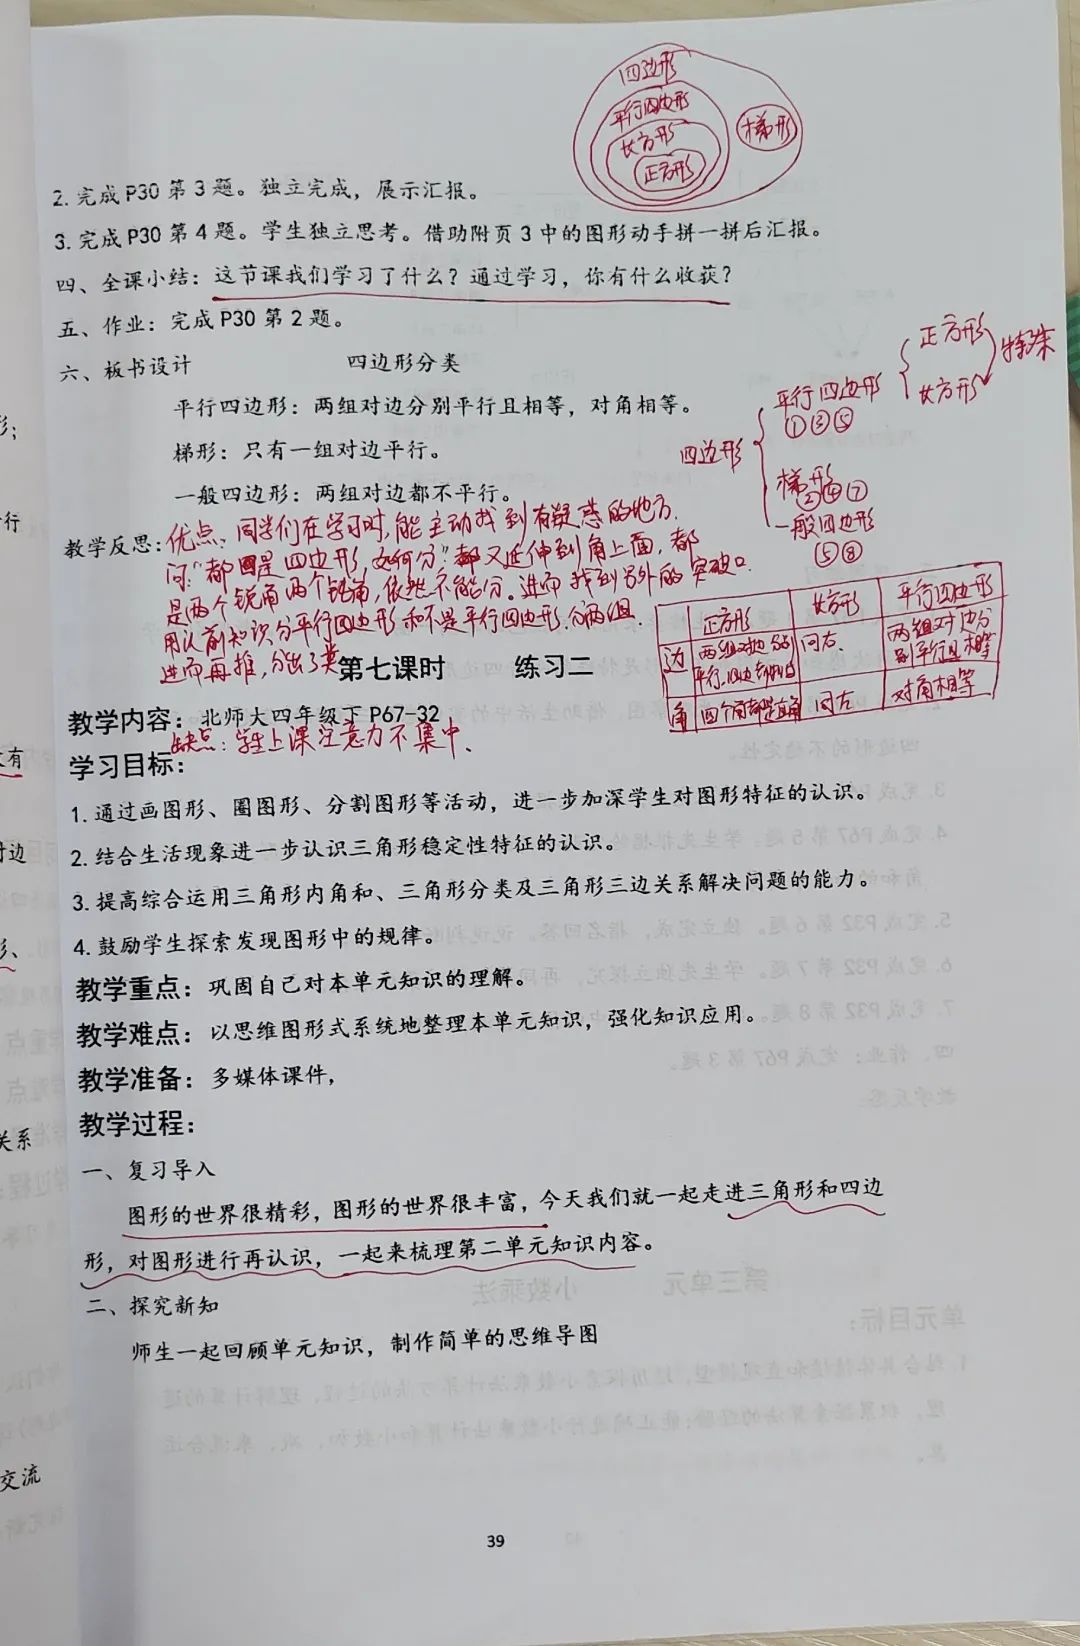 四边形
平行四边形
长方形
正方形
梯形
2. 完成 P30 第 3 题。独立完成，展示汇报。
3. 完成 P30 第 4 题。学生独立思考。借助附页 3 中的图形动手拼一拼后汇报。
四、全课小结：这节课我们学习了什么？通过学习，你有什么收获？
五、作业：完成 P30 第 2 题。
六、板书设计 四边形分类
平行四边形：两组对边分别平行且相等，对角相等。
梯形：只有一组对边平行。
一般四边形：两组对边都不平行。
四边形
平行四边形
①③⑤
正方形
长方形
特殊
梯形
②④⑦
一般四边形
⑤⑧
教学反思：优点：同学们在学习时，能主动找到有疑惑的地方.
问："都是四边形，如何分"都又延伸到角上面，都
是两个锐角两个钝角，依然不能分。进而找到另外的突破口
用以前知识，分平行四边形和不是平行四边形.分两组.
进而再推，分出了类
正方形 长方形 平行四边形
边 两组对边分别平行.四边都相等 同左. 两组对边分别平行且相等
角 四个角都是直角 同左 对角相等
第七课时 练习二
教学内容：北师大四年级下 P67-32
缺点：学生上课注意力不集中、
学习目标：
1. 通过画图形、圈图形、分割图形等活动，进一步加深学生对图形特征的认识。
2. 结合生活现象进一步认识三角形稳定性特征的认识。
3. 提高综合运用三角形内角和、三角形分类及三角形三边关系解决问题的能力。
4. 鼓励学生探索发现图形中的规律。
教学重点：巩固自己对本单元知识的理解。
教学难点：以思维图形式系统地整理本单元知识，强化知识应用。
教学准备：多媒体课件，
教学过程：
一、复习导入
图形的世界很精彩，图形的世界很丰富，今天我们就一起走进三角形和四边
形，对图形进行再认识，一起来梳理第二单元知识内容。
二、探究新知
师生一起回顾单元知识，制作简单的思维导图
39